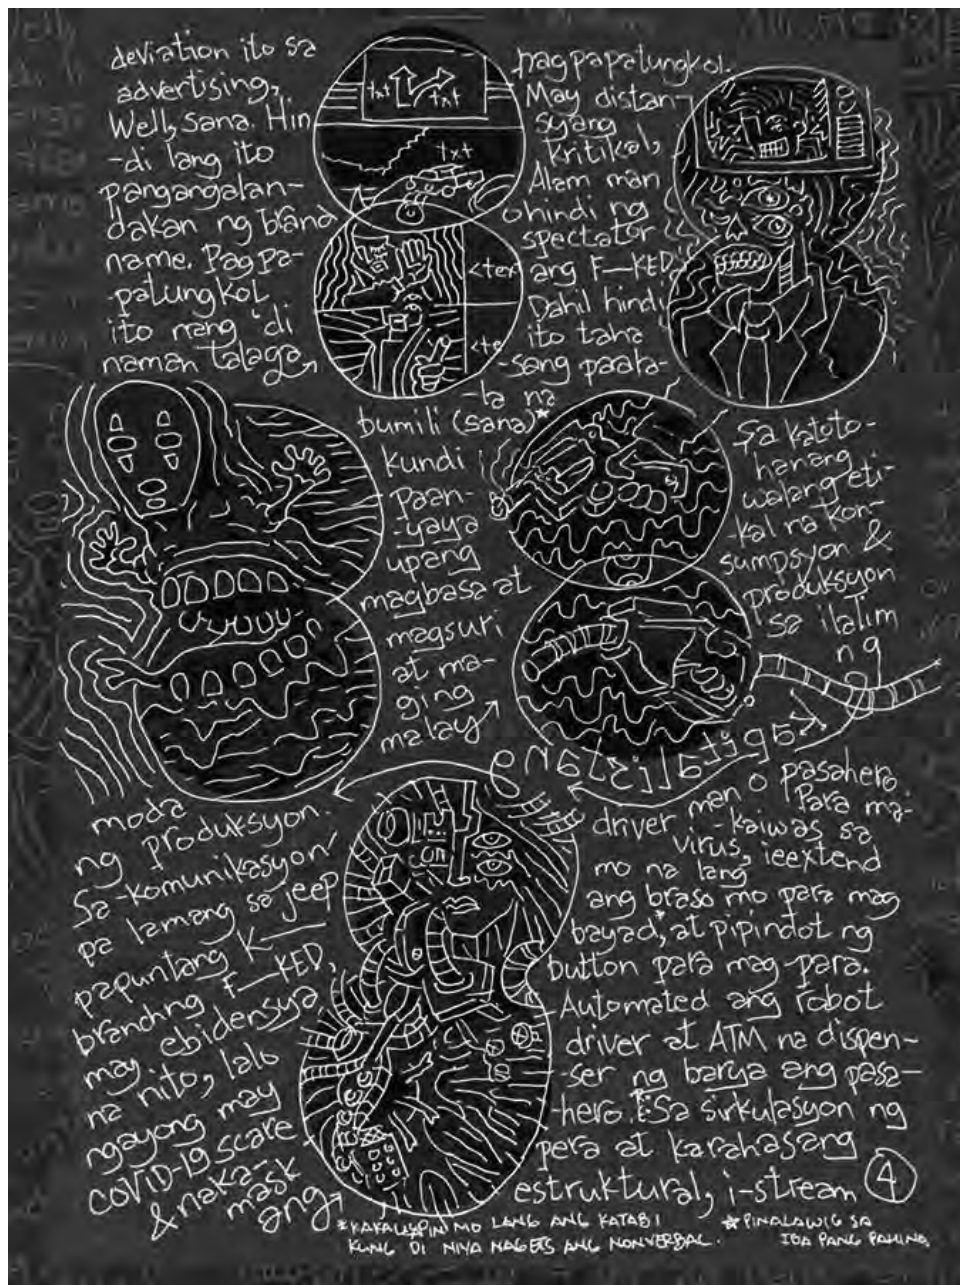 deviation ito sa
advertising,
Well, sana. Hin
-di lang ito
pangangalan-
dakan ng brand
name. Pagpa-
-patungkol
ito nang 'di
naman talaga
txt
txt
txt
<tex
<te
nagpapatungkol.
May distan-
syang
kritikal,
Alam man
o hindi ng
spectator
ang F—KED,
Dahil hindi
ito taha
-sang parata-
-la na
bumili (sana)*
kundi
paan-
-yaya
upang
magbasa at
magsuri
at ma-
ging
malay
sa katoto-
hanang
walang eti-
kal na kon-
sumpsyon &
produksyon
sa ilalim
ng
moda
ng produksyon.
Sa komunikasyon
pa lamang sa jeep
papuntang K—
branchng F—KED,
may ebidensya
na nito, lalo
ngayong may
COVID-19 scare
& naka-
mask
ang
on
driver man o pasahero
Para ma-
-kaiwas sa
virus, ieextend
mo na lang
ang braso mo para mag
bayad,* at pipindot ng
button para mag-para.
Automated ang robot
driver at ATM na dispen-
-ser ng barya ang pasa-
-hero. Sa sirkulasyon ng
pera at karahasang
estruktural, i-stream
4
*KAKAUSPIN MO LANG ANG KATABI
KUNG DI NIYA NAGETS ANG NONVERBAL.
☆PINALAWIG SA
IBA PANG PAHINA.